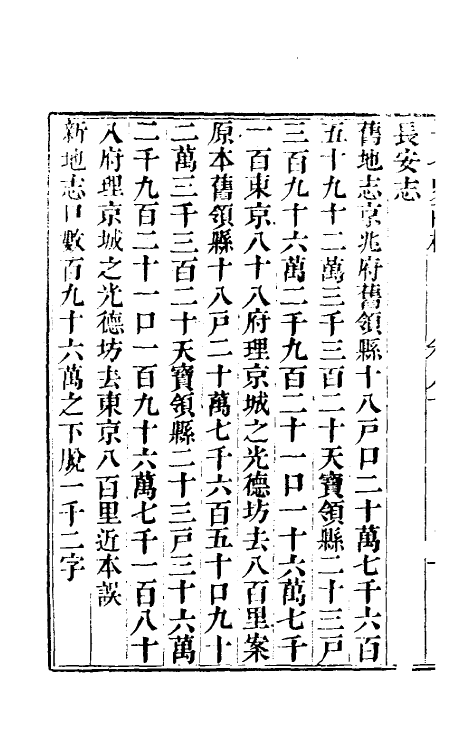 長安志
舊地志京兆府舊領縣十八戶口二十萬七千六百
五十九十二萬三千三百二十天寶領縣二十三戶
三百九十六萬二千九百二十一口一十六萬七千
一百東京八十八府理京城之光德坊去八百里案
原本舊領縣十八戶二十萬七千六百五十口九十
二萬三千三百二十天寶領縣二十三戶三十六萬
二千九百二十一口一百九十六萬七千一百八十
八府理京城之光德坊去東京八百里近本誤
新地志口數百九十六萬之下脫一千二字